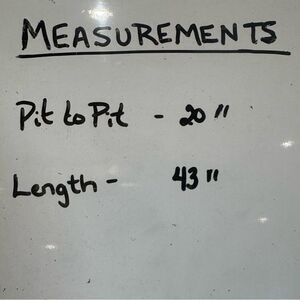 MEASUREMENTS
Pit to Pit - 20"
Length - 43"